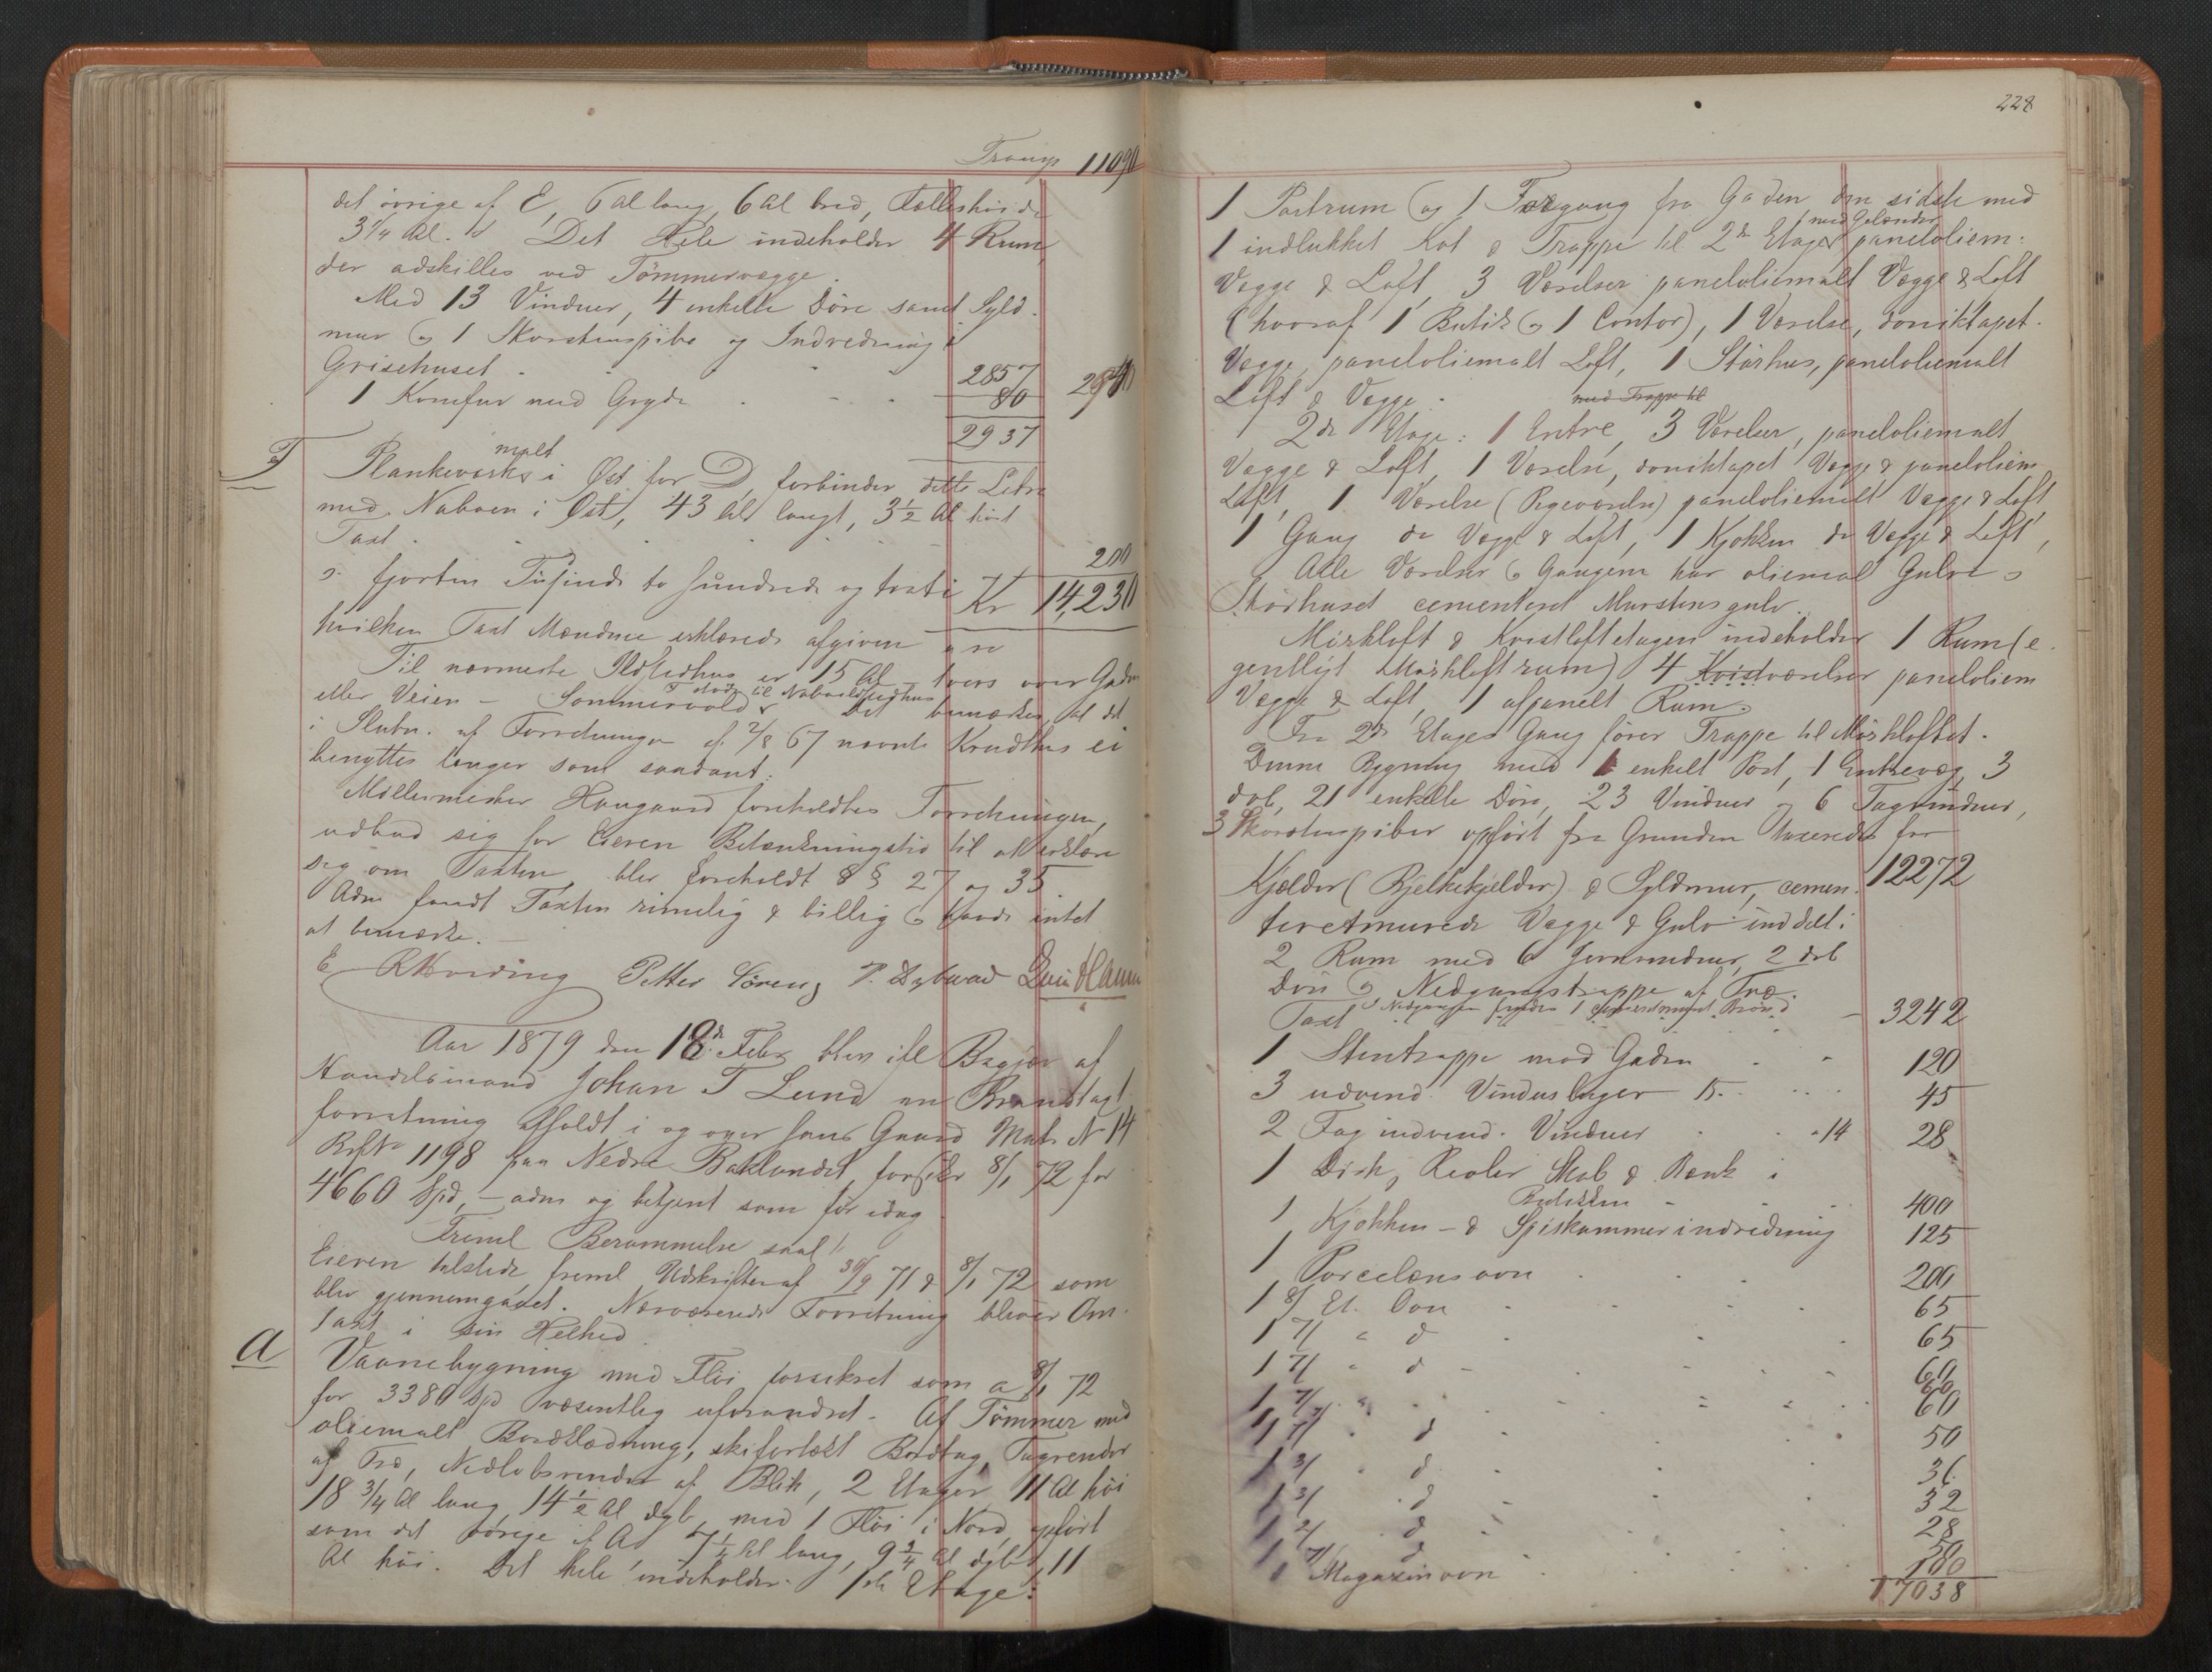 Transp 11090
det övrige af E, 6 al lang, 6 al bred, Fælleshöide
3 1/4 Al. Det Hele indeholder 4 Rum,
der adskilles ved Tömmervægge.
Med 13 Vinduer, 4 enkelte Döre samt Syld-
mur og 1 Skorstenspibe og Indredning i
Grisehuset 2857
1 Komfur med Gryde 80 2940
2937
F Plankeværks malt i Øst for D, forbinder dette Litra
med Naboen i Øst, 43 al langt, 3 1/2 al höit
Taxt 200
fjorten Tusinde to hundrede og tretti Kr 14,230
hvilken Taxt Mændene erklærede afgiven
Til nærmeste Ildstedhus er 15 Al tvers over Gaden
eller Veien - Sommervold Det bemærkes, at det
i Slutn. af Forretningen af 2/8 67 nævnte Krudthus ei
benyttes længer som saadant.
Möllermester Haugaard foreholdtes Forretningen,
udbad sig for Eieren Betænkningstid til at erklære
sig om Taxten, blev foreholdt § 27 og 35.
Adm fandt Taxten rimelig & billig og havde intet
at bemærke.
Petter Sörens P. Dybwad
Aar 1879 den 18de Febr blev ifl Begjær af
Handelsmand Johan F Lund en Brandtaxt
forretning afholdt i og over hans Gaard Matr N 14
BrfNo 1198 paa Nedre Baklandet, forsikr 8/1 72 for
4660 Spd, - adm og betjent som för idag
Freml Berammelse saal
Eieren tilstede freml Udskrifter af 30/9 71 & 8/1 72 som
blev gjennemgaaet. Nærværende Forretning bliver Om-
taxt i sin Helhed.
A Vaanebygning med Flöi forsikret som a 8/1 72
for 3380 Spd væsentlig uforandret. Af Tömmer med
oliemalt Bordklædning, skifertækt Bordtag, Tagrender
af Træ, Nedløbsrender af Blik, 2 Etager 11 Al höi
18 3/4 Al lang 14 1/2 Al dyb, med 1 Flöi i Nord, opfört
som det övrige af A 7 1/2 Al lang, 9 3/4 Al dyb, 11
Al höi. Det hele indeholder. 1ste Etage:
228
1 Portrum og 1 Forgang fra Gaden den sidste med
1 indlukket Kot & Trappe til 2de Etage med Gelænder paneloliem:
Vægge & Loft, 3 Værelser paneloliemalt Vægge & Loft
(hvoraf 1 Butik og 1 Contor), 1 Værelse, doniktapet-
Vægge, paneloliemalt Loft, 1 Størhus, paneloliemalt
Loft & Vægge. med Trappe til
2de Etage: 1 Entre, 3 Værelser, paneloliemalt
Vægge & Loft, 1 Værelse, doniktapet Vægge & paneloliem
Loft, 1 Værelse (Pigeværelse) paneloliemalt Vægge & Loft,
1 Gang do Vægge & Loft, 1 Kjökken do Vægge & Loft,
Alle Værelser og Gangene har oliemal Gulve
Störhuset cementeret Murstensgulv.
Mörkloft & Kvistloftetagen indeholder 1 Rum (e-
gentligt Mörkloftrum) 4 Kvistværelser paneloliem
Vægge & Loft, 1 afpanelt Rum.
Fra 2de Etages Gang förer Trappe til Mörkloftet.
Denne Bygning med 1 enkelt Port, 1 Entrevæg, 3
dob, 21 enkelte Döre, 23 Vinduer og 6 Tagvinduer,
3 Skorstenspiber opfört fra Grunden taxeredes for
12272
Kjælder (Bjelkekjelder) & Syldmur, cemen-
teretmurede Vægge & Gulv inddelt i
2 Rum med 6 Jernvinduer, 2 dob
Döre og Nedgangstrappe af Træ.
Taxt 3242
1 Stentrappe mod Gaden 120
3 udvend. Vinduslager 15 45
2 Fag indvend. Vinduer 14 28
1 Disk, Reoler Skab & Bænk i
Butikken 400
1 Kjökken- & Spiskammerindredning 125
1 Porcelænsovn 200
1 8/ Et. Ovn 65
1 7/ " d 65
1 7/ " d 60
1 7/ " 60
1 7/ d 50
1 3/ d 36
1 3/ d 32
1 2/ d 28
1 7/ d 50
1 Magazinovn 100
17038